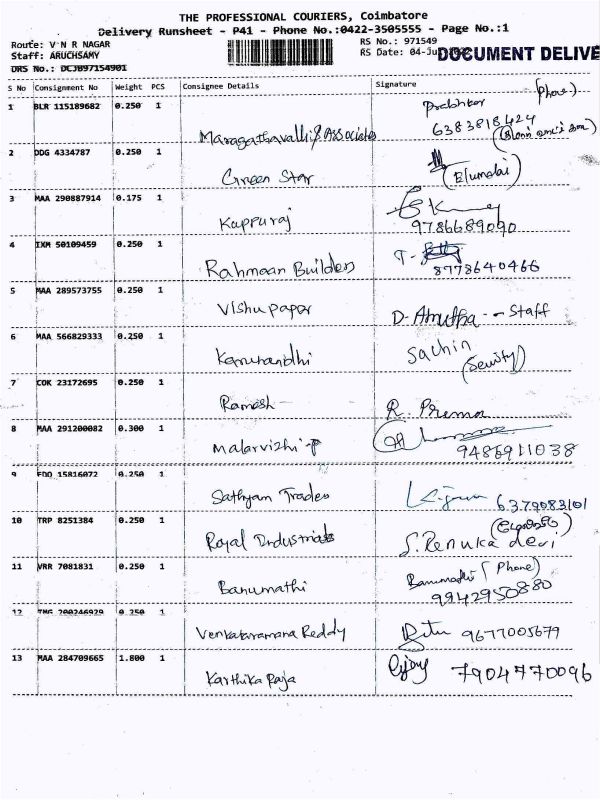 THE PROFESSIONAL COURIERS, Coimbatore
Delivery Runsheet - P41 - Phone No.:0422-3505555 - Page No.:1
Route: V N R NAGAR
RS No.: 971549
Staff: ARUCHSAMY
RS Date: 04-Ju
DOCUMENT DELIVE
DRS No.: DCJB97154901
S No Consignment No Weight PCS Consignee Details Signature
1 BLR 115189682 0.250 1 Prabhkar (Phone)
Maragathavalli & Associates 6383818424
2 DDG 4334787 0.250 1
Green Star (Elumalai)
3 MAA 290887914 0.175 1
Kuppuraj 9786689090
4 IXM 50109459 0.250 1
Rahmaan Builders 8778640466
5 MAA 289573755 0.250 1
Vishu papar D. Anutha -- Staff
6 MAA 566829333 0.250 1 Sachin
Karunandhi (Security)
7 COK 23172695 0.250 1
Ramesh R. Prema
8 MAA 291200082 0.300 1
Malarvizhi - P 9486911038
9 EDO 15816072 0.250 1
Sathyam Trades 6379083101
10 TRP 8251384 0.250 1
Royal Industrials S. Renuka devi
11 VRR 7081831 0.250 1 Banumathi (Phone)
Banumathi 9942950880
12 0.250 1
Venkataramana Reddy 9677005679
13 MAA 284709665 1.800 1
Karthika Raja 7904770096